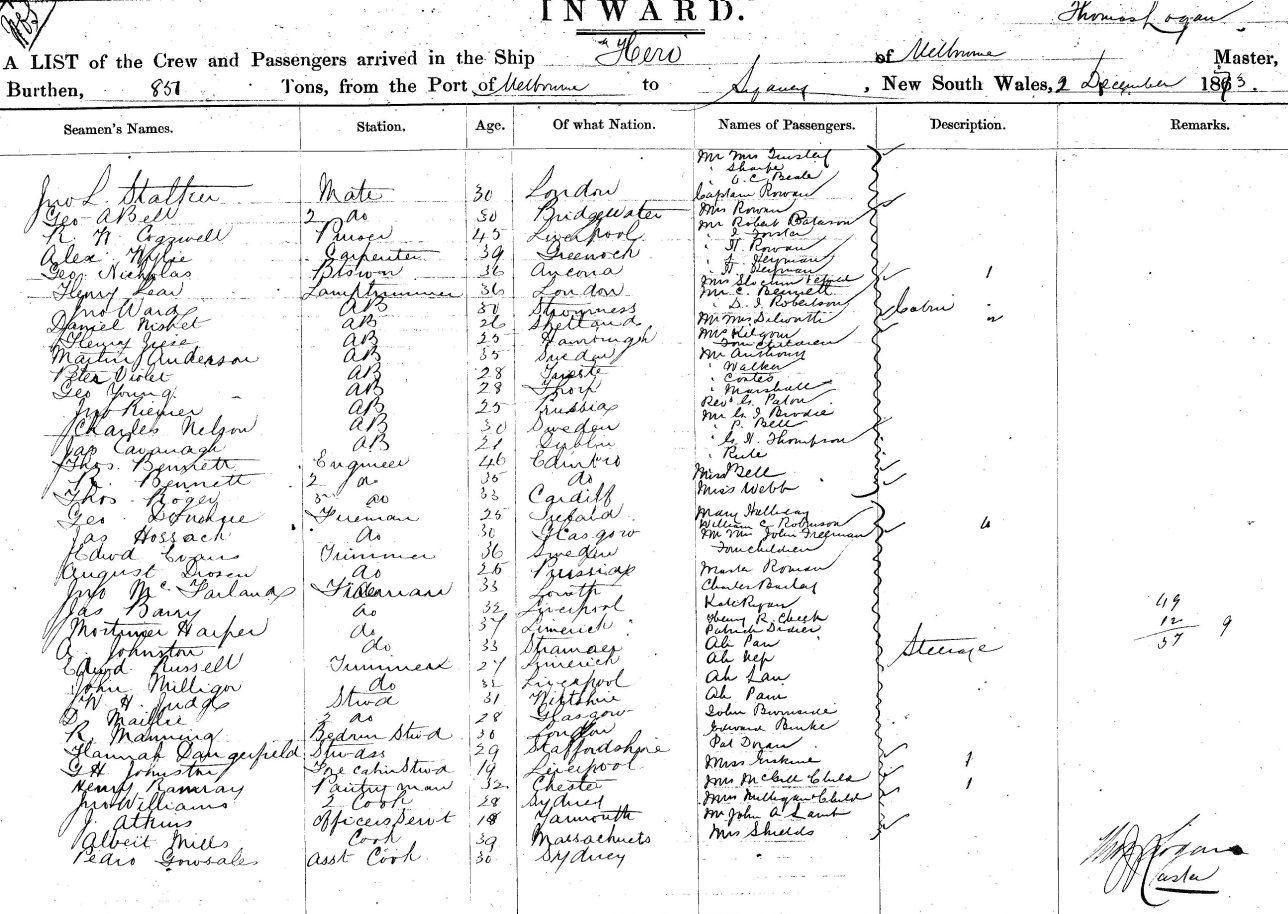 INWARD.
Thomas Logan
A LIST of the Crew and Passengers arrived in the Ship "Hero" of Melbourne Master,
Burthen, 851 Tons, from the Port of Melbourne to Sydney, New South Wales, 2 December 1873.
Seamen's Names. Station. Age. Of what Nation. Names of Passengers. Description. Remarks.
Jno L. Stalker Mate 30 London
Geo A Bell 2 do 30 Bridgewater
R. N. Cogswell Purser 45 Liverpool
Alex Wylie Carpenter 39 Greenock
Geo Nicholas Bswn 36 Ancona
Henry Lear Lamptrimmer 36 London
Jno Ward AB 30 Stromness
Daniel Nisbet AB 26 Shetland
Henry Jiese AB 25 Hambrugh
Martin Anderson AB 35 Sweden
Peter Violet AB 28 Trieste
Geo Young AB 28
Jno Riemer AB 25 Prussia
Charles Nelson AB 30 Sweden
Jas Cavanagh AB 21 Dublin
Thos. Bennett Engineer 46 Edinbro
R. Bennett 2 do 35 do
Thos Roger 3 do 33 Cardiff
Geo Fireman 25
Jas Hossack do 30 Glasgow
Edwd Evans Trimmer 36 Sweden
August do 26 Prussia
Jno McFarland Fireman 33 Louth
Jas Barry do 32 Liverpool
Mortimer Harper do 37 Limerick
A. Johnston do 33 Stranraer
Edwd Russell Trimmers 27 Limerick
John Milligan do 32 Liverpool
W. H. Judge Stwd 31 Wiltshire
D. Maillie 2 do 28 Glasgow
R. Manning Bedrm Stwd 30 London
Hannah Dangerfield Stwdss 29 Staffordshire
G H Johnston Fore cabin Stwd 19 Liverpool
Henry Ramsay Pantryman 32 Chester
Jno Williams 2 Cook 28 Sydney
J. Atkins Officers Servt 18 Yarmouth
Albert Mills Cook 39 Massachusets
Pedro Gowsales Asst Cook 30 Sydney
Mr Mrs
" Sharpe
" O. C. Beale
Captain Rowan
Mrs Rowan
Mr Robert Bateson
" J. Forster
" H Rowan
" Heyman
" H Heyman
Mrs Slocum & Child 1
Mr C. Bennett
" D. J. Robertson
Mr Mrs Dilworth Cabin
Mrs Kilgour
Four Children
Mr Anthony
" Walker
" Coates
" Marshall
Revd G. Paton
Mr G. J. Brodie
" P. Bell
" G. H. Thompson
" Rule
Miss Bell
Miss Webb
Mary Halliday
William C Robinson 4
Mr Mrs John Freeman
Four children
Martha Roman
Charles
Kate Ryan
Henry R. Cheek
Patrick
Ah Pan Steerage
Ah Yep
Ah Lau
Ah Pam
John Burnside
Edward Burke
Pat Doran
Miss Erskine 1
Mrs McGill Child 1
Mrs Milligan & Child
Mr John A Lamb
Mrs Shields
49
12
37 9
Thos Logan
Master